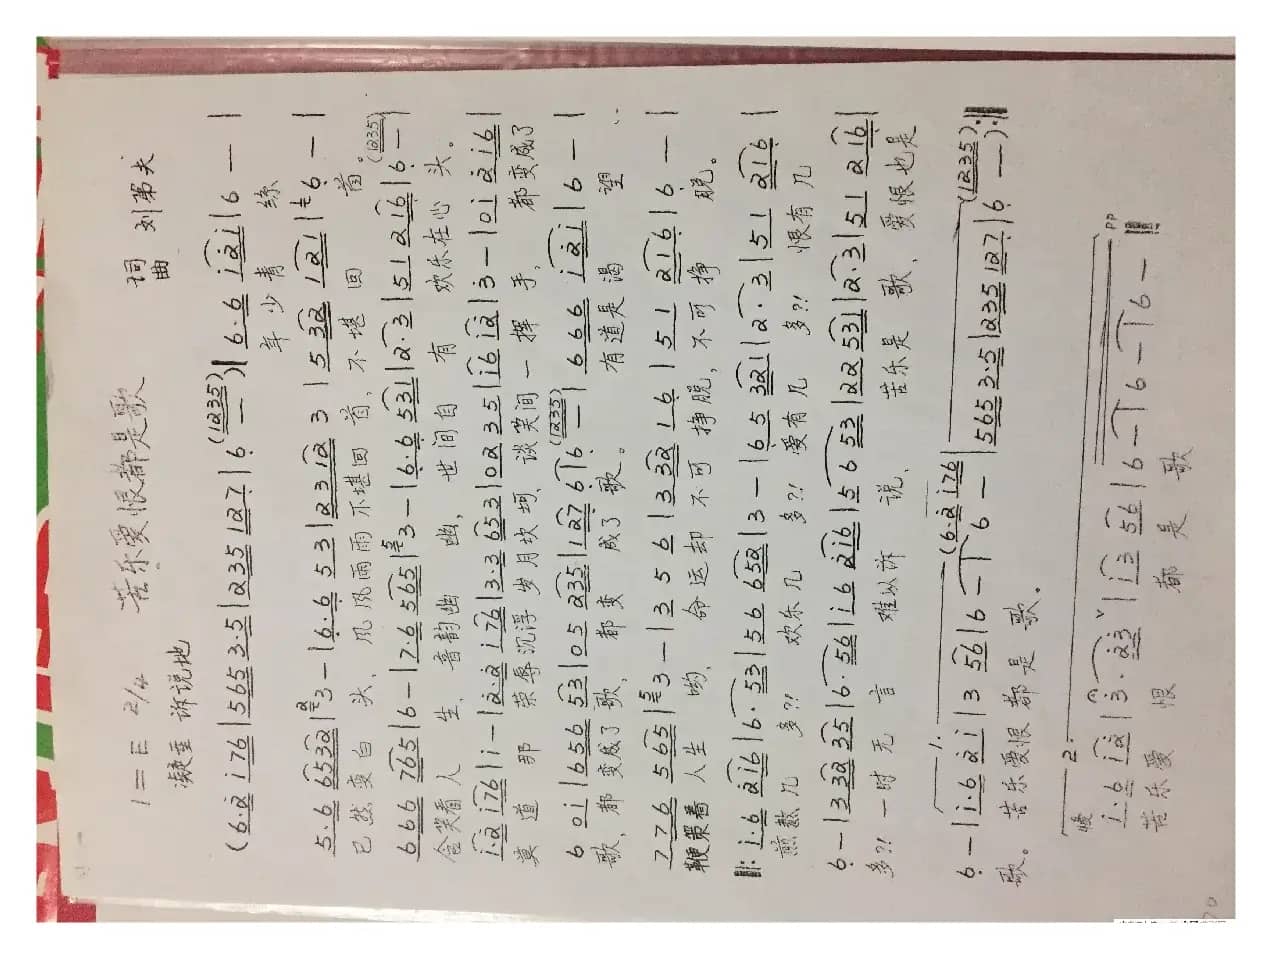 苦乐爱恨都是歌
1=E 2/4
词曲 刘第夫
凝重 诉说地
(6·2 i76 | 5653·5 | 235 127 | 6 — )‖ 6·6 i2i | 6 — |
(1235)
年少青丝
5·6 6532 | 3 — | 6·6 53 | 2312 3 | 5 32 121 | 6 — |
已然变白头, 风风雨雨不堪回首, 不堪回首。
(1235)
666 765 | 6 — | 76 565 | 3 — | 6·6 531 | 2·3 | 51 216 | 6 — |
含笑看人生, 音韵幽幽, 世间自有欢乐在心头。
i·2 i76 | i — | 2·2 i76 | 33 653 | 0235 | i6 i2 | 3 — | 0i 2i6 |
莫道那荣辱沉浮岁月坎坷, 谈笑间一挥手, 都变成了
(1235)
6 0i | 656 53 | 05 235 | 127 6 | 6 — | 666 i2i | 6 — |
歌, 都变成了歌, 都变成了歌。 有道是渴望
776 565 | 3 — | 356 | 332 16 | 51 216 | 6 — |
鞭策着人生哟, 命运却不可挣脱, 不可挣脱。
‖: i·6 2i6 | 6·53 | 56 652 | 3 — | 65 321 | 2·3 | 51 216 |
煎熬几多?! 欢乐几多?! 爱有几多?! 恨有几
6 — | 332 235 | 6·56 | i6 2i6 | 5653 | 22 531 | 2·3 | 51 216 |
多?! 一时无言难以诉说, 苦乐是歌, 爱恨也是
1.
(6·2 i76
(1235)
6 — | i·6 2i | 3 56 | 6 — | 6 — | 5653·5 | 235 127 | 6 — ) :‖
歌。 苦乐爱恨都是歌。
2.
慢
pp
i·6 i2 | 3·23 ˅ | i3 56 | 6 — | 6 — | 6 — ‖
苦乐爱恨都是歌